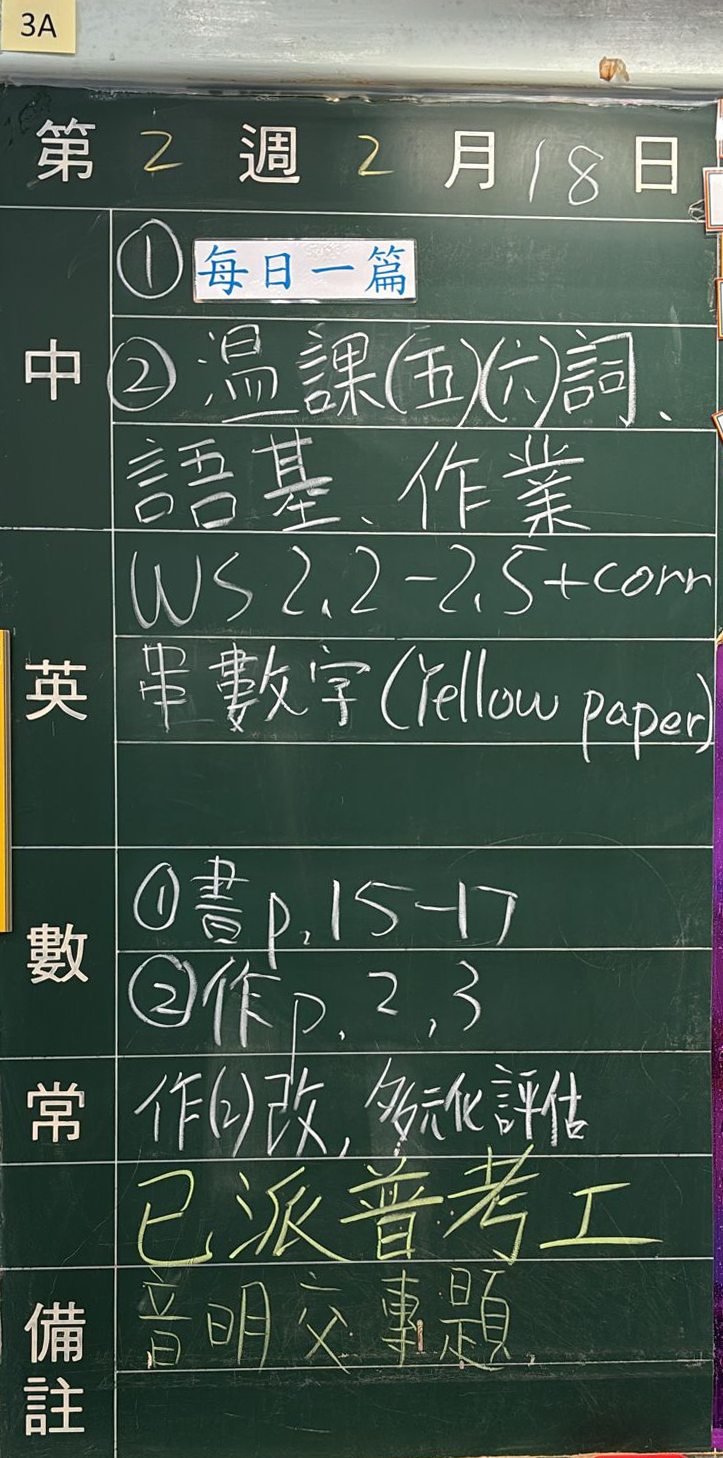 3A
第 2 週 2 月 18 日
中
① 每日一篇
② 温課(五)(六)詞、
語基、作業
英
WS 2.2-2.5+corr
串數字(Yellow paper)
數
①書p.15-17
②作p.2,3
常
作(2)改,多元化評估
已派普考工
備註
音明交專題